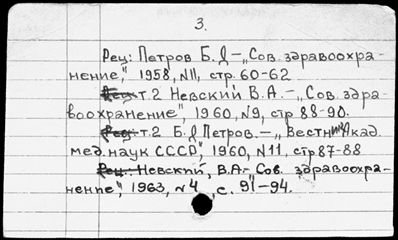 3.
Рец: Петров Б.Д – „Сов. здравоохра-
нение", 1958, N11, стр. 60-62
Рец. т.2 Невский В.А. – „Сов. здра-
воохранение", 1960, N9, стр 88-90.
Рец. т.2 Б.Д Петров. – „Вестник Акад.
мед. наук СССР", 1960, N11, стр 87-88
Рец.: Невский, В.А – Сов. здравоохра-
нение", 1963, N4, с. 91-94.